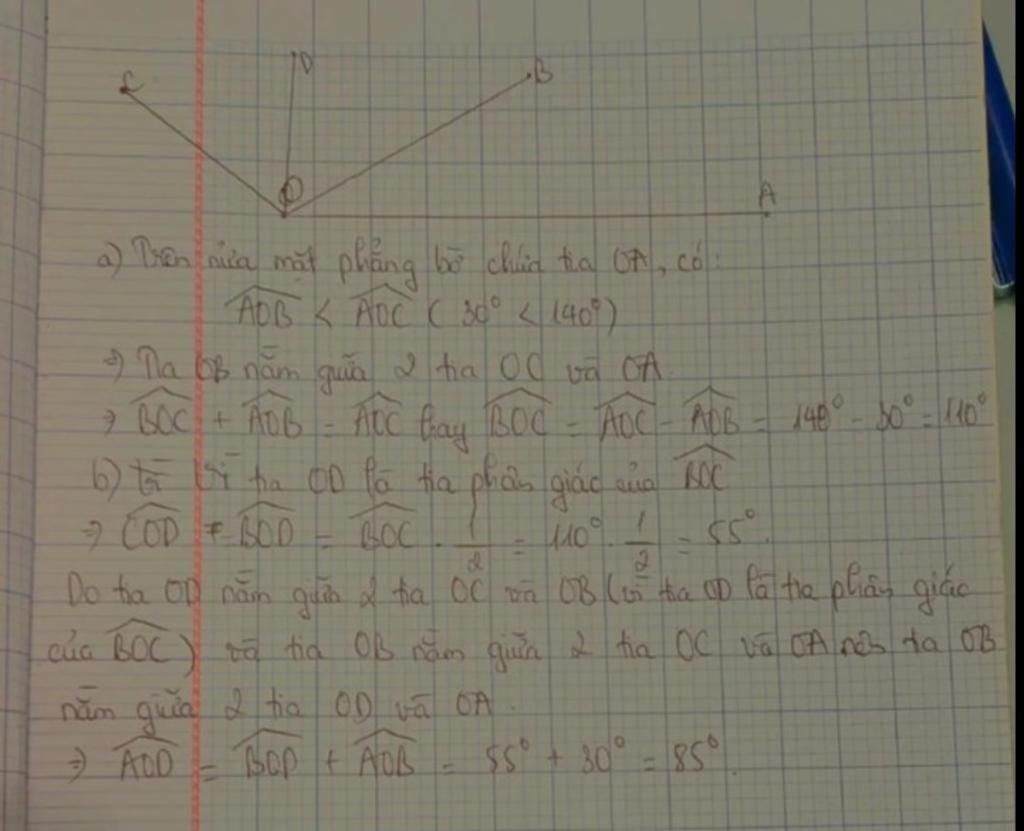 C D B
O A
a) Trên nửa mặt phẳng bờ chứa tia OA, có:
$\widehat{AOB}$ < $\widehat{AOC}$ ( 30° < 140°)
⇒ Tia OB nằm giữa 2 tia OC và OA
⇒ $\widehat{BOC}$ + $\widehat{AOB}$ = $\widehat{AOC}$ hay $\widehat{BOC}$ = $\widehat{AOC}$ - $\widehat{AOB}$ = 140° - 30° = 110°
b) Vì tia OD là tia phân giác của $\widehat{BOC}$
⇒ $\widehat{COD}$ = $\widehat{BOD}$ = $\widehat{BOC}$ . $\frac{1}{2}$ = 110° . $\frac{1}{2}$ = 55°.
Do tia OD nằm giữa 2 tia OC và OB (vì tia OD là tia phân giác
của $\widehat{BOC}$) và tia OB nằm giữa 2 tia OC và OA nên tia OB
nằm giữa 2 tia OD và OA.
⇒ $\widehat{AOD}$ = $\widehat{BOD}$ + $\widehat{AOB}$ = 55° + 30° = 85°.